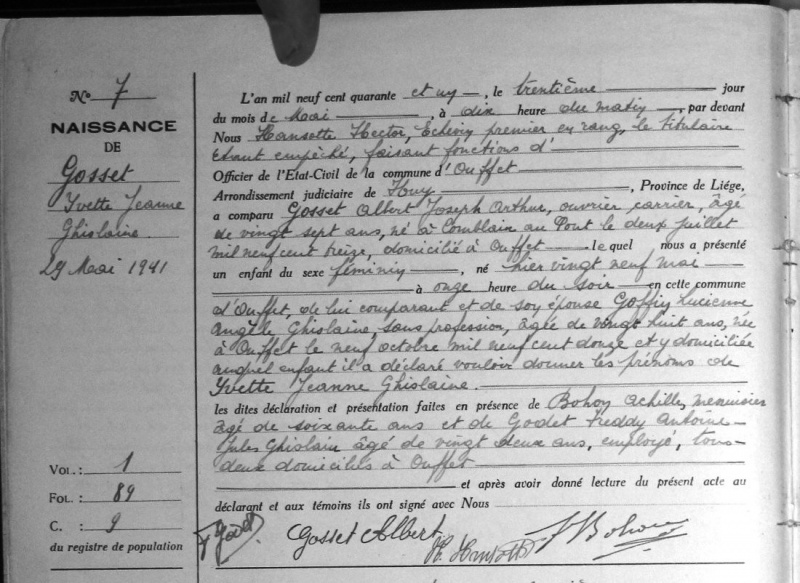 N° 7
NAISSANCE
DE
Gosset
Yvette Jeanne
Ghislaine
29 Mai 1941
L'an mil neuf cent quarante et un, le trentième jour
du mois de Mai, à dix heure du matin, par devant
Nous Hansotte Hector, Echevin premier en rang, le titulaire
étant empêché, faisant fonctions d'
Officier de l'Etat-Civil de la commune d'Ouffet
Arrondissement judiciaire de Huy, Province de Liége,
a comparu Gosset Albert Joseph Arthur, ouvrier carrier, âgé
de vingt sept ans, né à Comblain au Pont le deux juillet
mil neuf cent treize, domicilié à Ouffet lequel nous a présenté
un enfant du sexe féminin, né hier vingt neuf mai
à onze heure du soir en cette commune
d'Ouffet, de lui comparant et de son épouse Goffin Lucienne
Angèle Ghislaine, sans profession, âgée de vingt huit ans, née
à Ouffet le neuf octobre mil neuf cent douze et y domiciliée
auquel enfant il a déclaré vouloir donner les prénoms de
Yvette Jeanne Ghislaine.
les dites déclaration et présentation faites en présence de Bohon Achille, menuisier
âgé de soixante ans et de Godet Freddy Antoine
Jules Ghislain âgé de vingt deux ans, employé, tous
deux domiciliés à Ouffet
et après avoir donné lecture du présent acte au
déclarant et aux témoins ils ont signé avec Nous
VOL.: 1
FOL.: 89
C. : 9
du registre de population
F Godet
Gosset Albert
H. Hansotte
Bohon